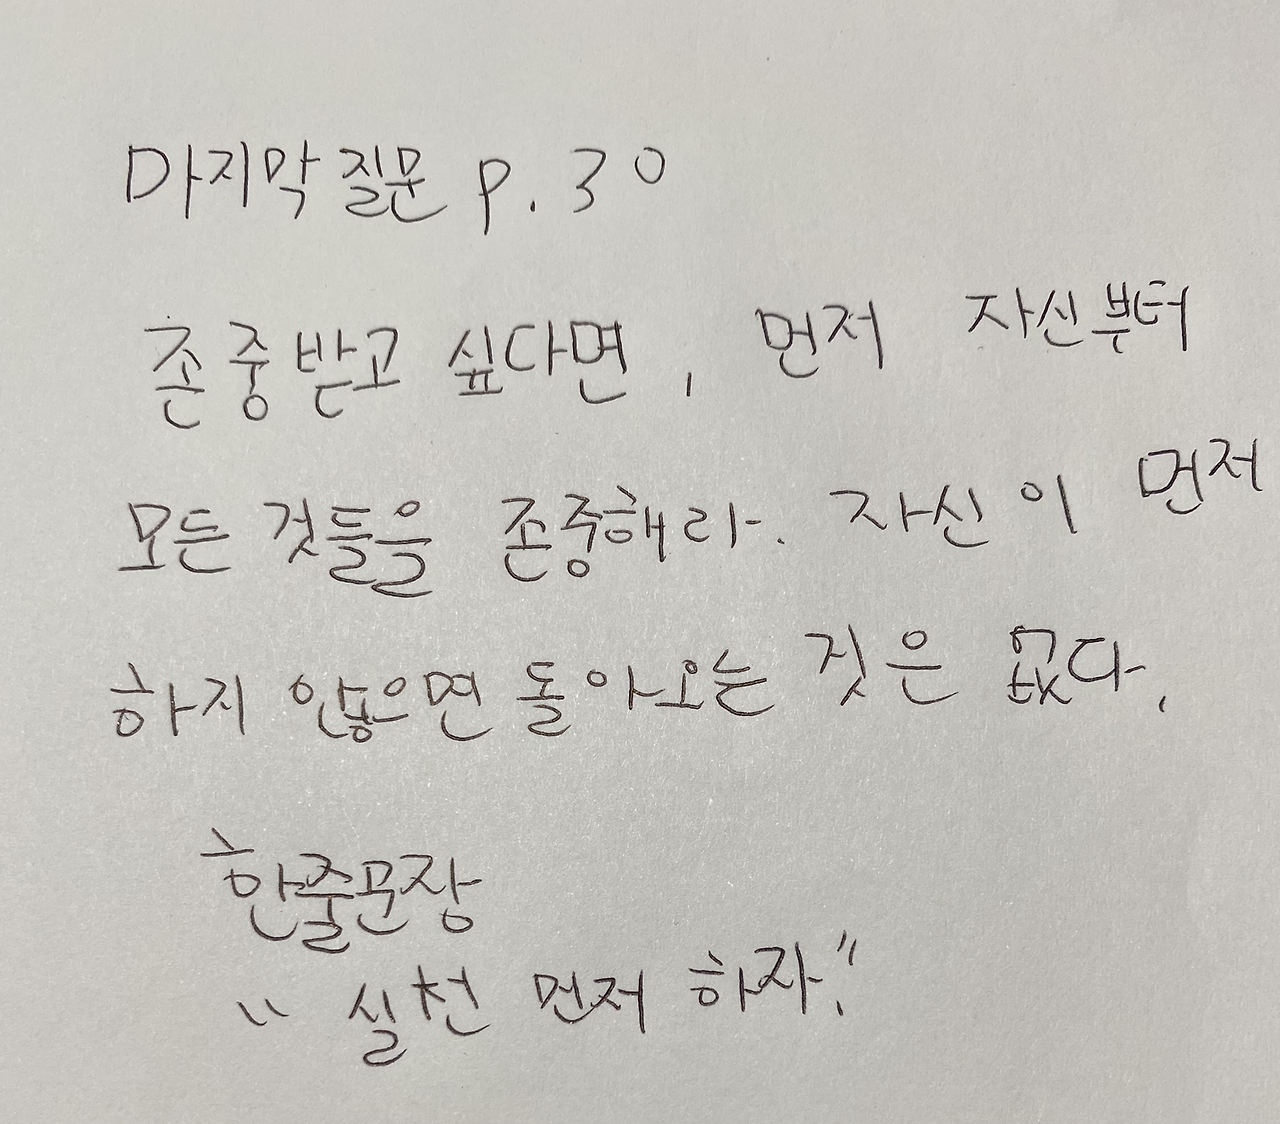 마지막 질문 p. 30
존중받고 싶다면, 먼저 자신부터
모든 것들을 존중해라. 자신이 먼저
하지 않으면 돌아오는 것은 없다.
한줄문장
"실천 먼저 하자."